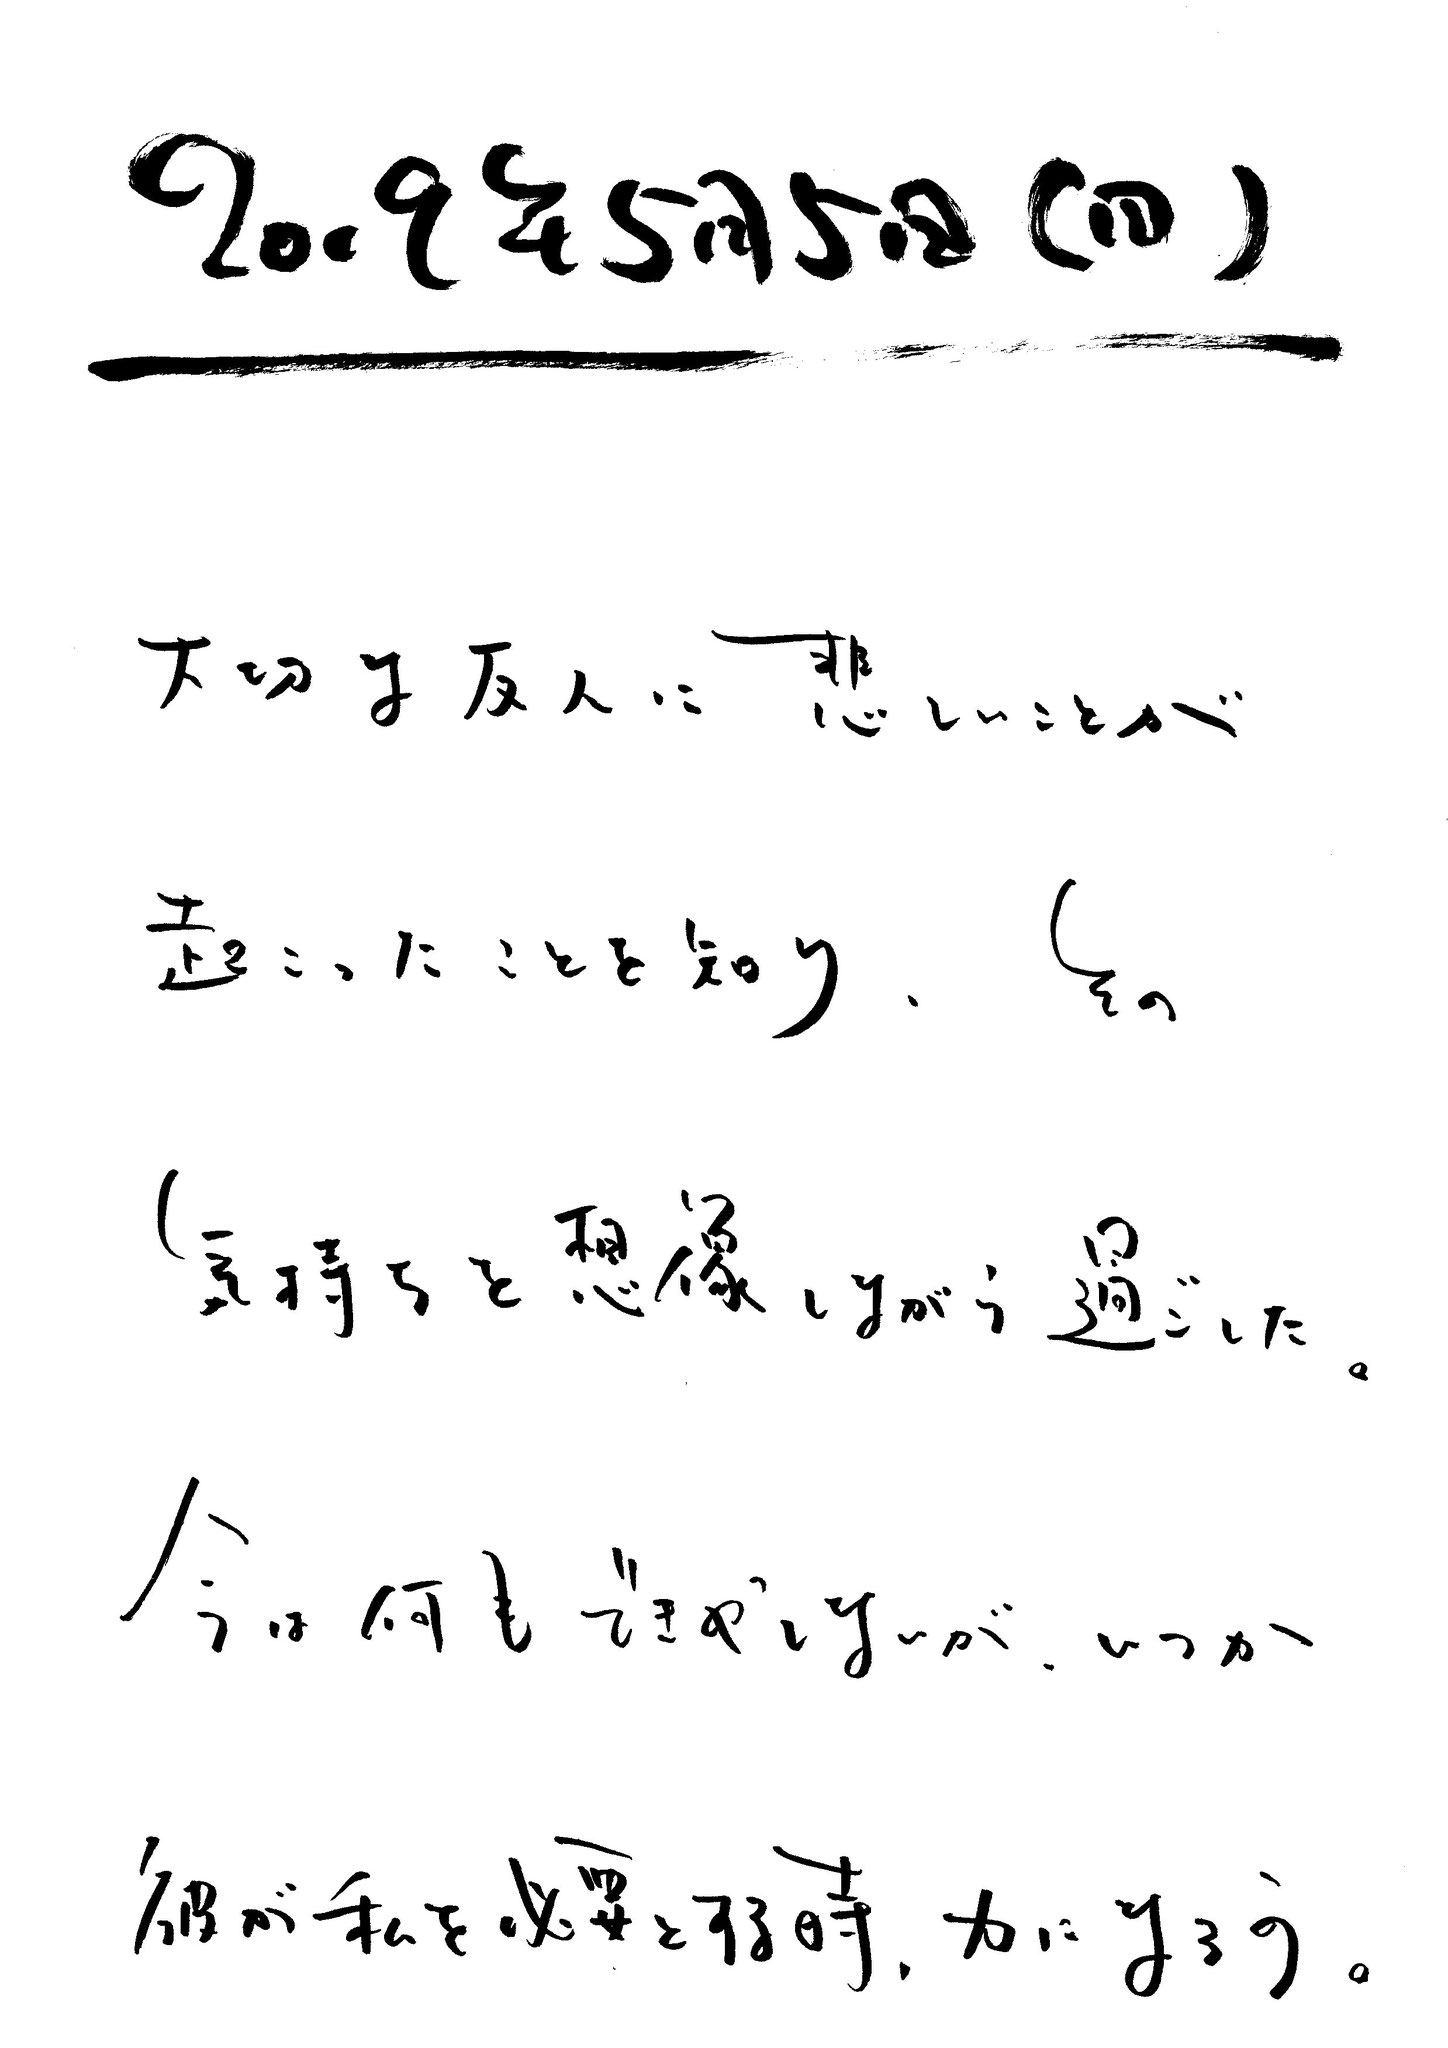 2019年5月5日(日)
大切な友人に悲しいことが
起こったことを知り、その
気持ちを想像しながら過ごした。
今は何もできやしないが、いつか
彼が私を必要とする時、力になろう。